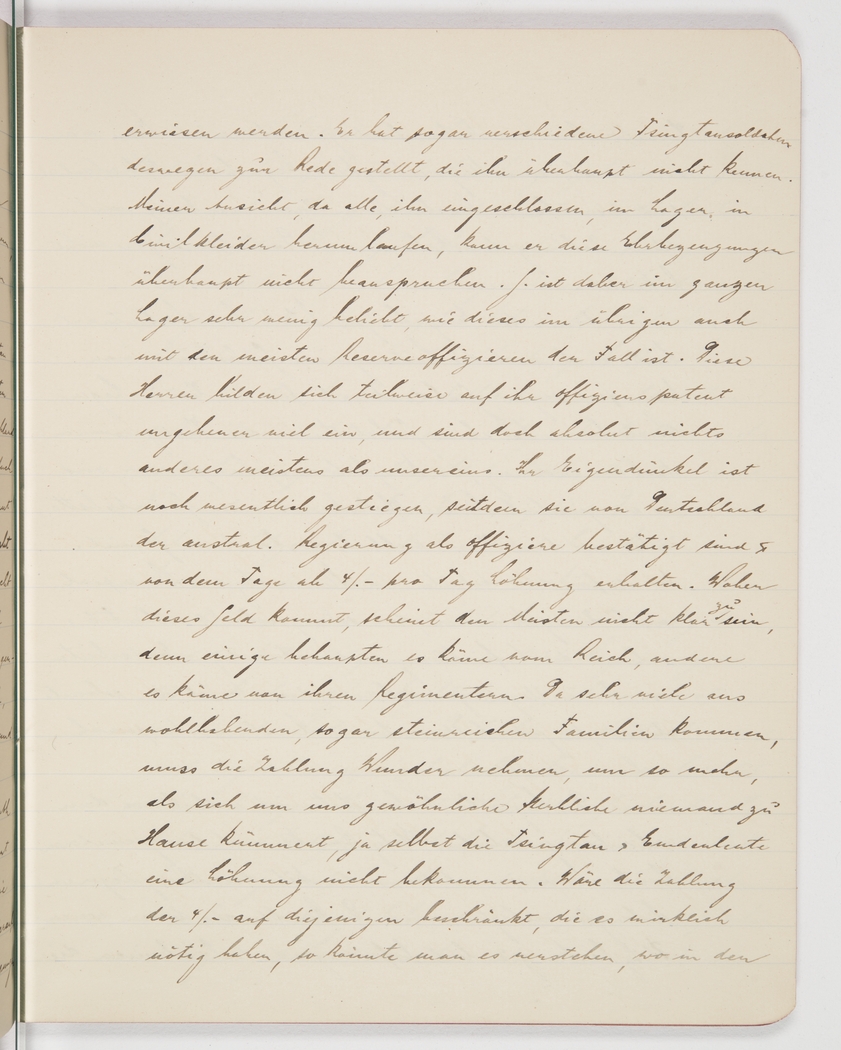 erwiesen werden. Er hat sogar verschiedene Tsingtausoldaten
deswegen zur Rede gestellt, die ihn überhaupt nicht kennen.
Meiner Ansicht, da alle, ihn eingeschlossen, im Lager, in
Civilkleider herumlaufen, kann er diese Ehrbezeugungen
überhaupt nicht beanspruchen. J. ist daher im ganzen
Lager sehr wenig beliebt, wie dieses im übrigen auch
mit den meisten Reserveoffizieren der Fall ist. Diese
Herren bilden sich teilweise auf ihr Offizierspatent
ungeheuer viel ein, und sind doch absolut nichts
anderes meistens als unsereins. Ihr Eigendünkel ist
noch wesentlich gestiegen, seitdem sie von Deutschland
der austral. Regierung als Offiziere bestätigt sind &
von dem Tage ab 4/.- pro Tag Löhnung erhalten. Woher
dieses Geld kommt, scheint den Meisten nicht klar zu sein,
denn einige behaupten es käme vom Reich, andere
es käme von ihren Regimentern. Da sehr viele aus
wohlhabenden, sogar steinreichen Familien kommen,
muss die Zahlung Wunder nehmen, um so mehr,
als sich um uns gewöhnliche Kerkliche niemand zu
Hause kümmert, ja selbst die Tsingtau & Emdenleute
eine Löhnung nicht bekommen. Wäre die Zahlung
der 4/.- auf diejenigen beschränkt, die es wirklich
nötig haben, so könnte man es verstehen, wo in den